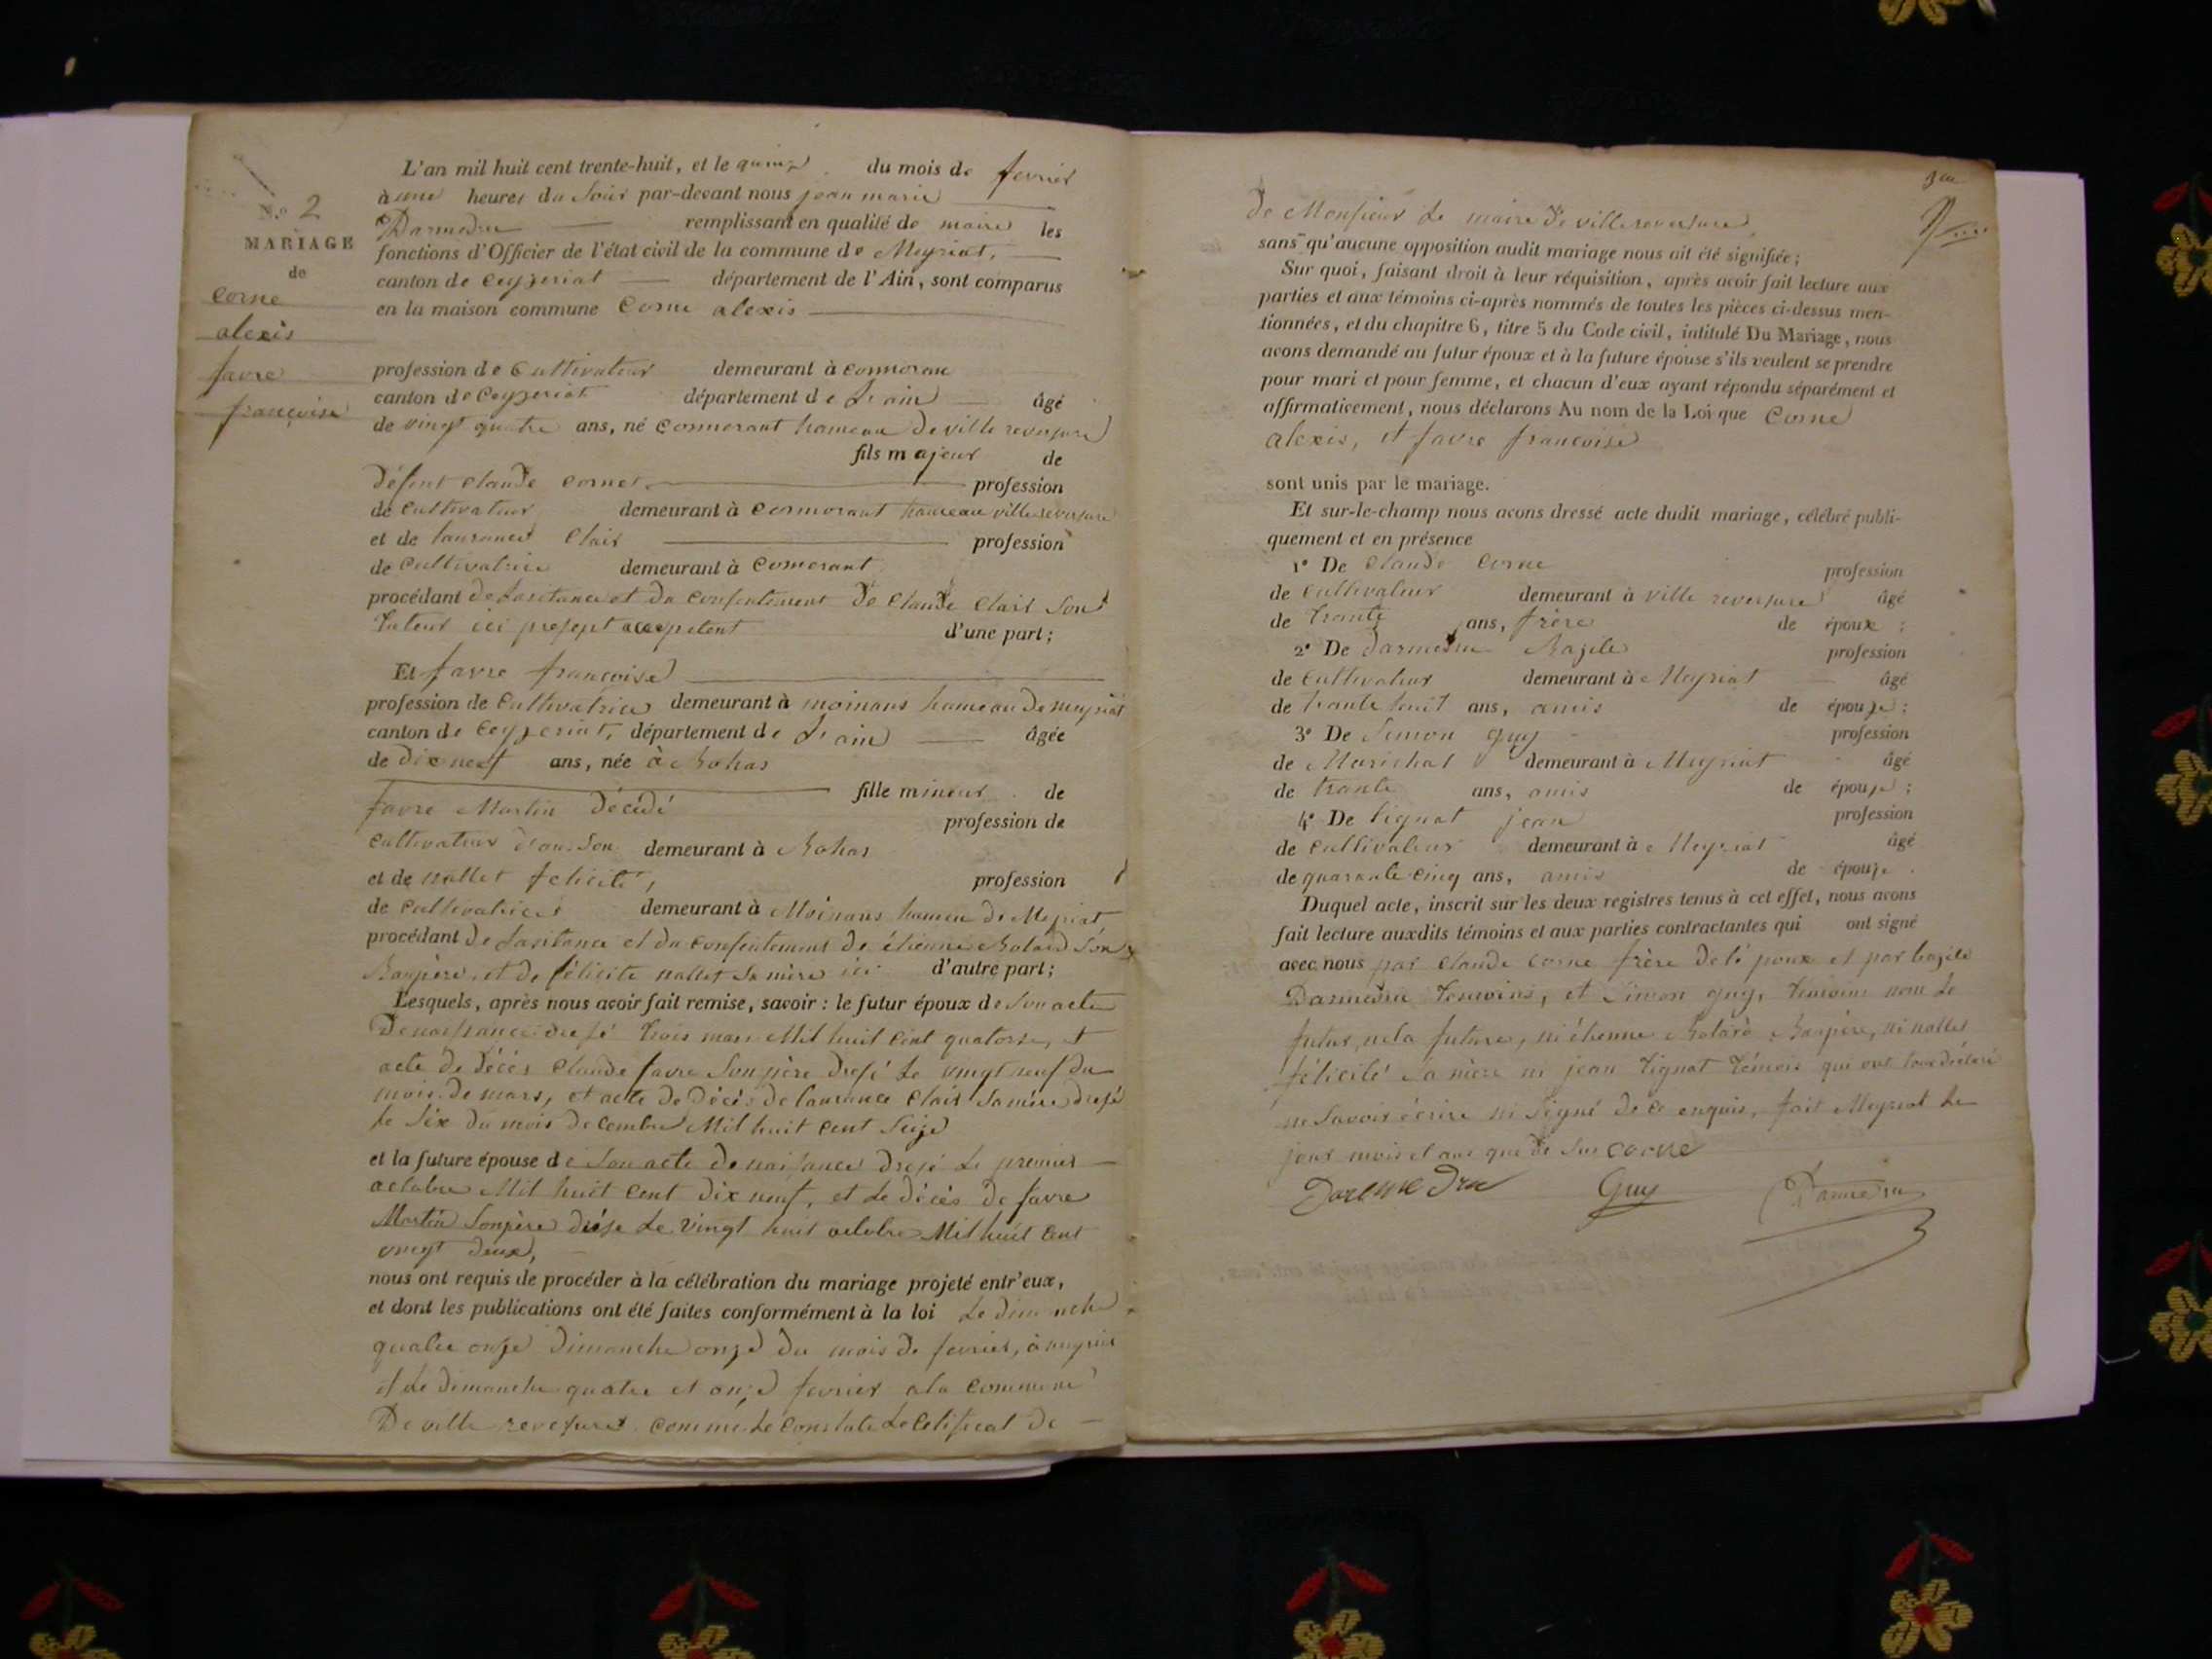 N.º 2
MARIAGE
de
corne
alexis
favre
françoise
L'an mil huit cent trente-huit, et le quinze du mois de fevrier
à une heures du Soir par-devant nous jean marie
Darmedru remplissant en qualité de maire les
fonctions d'Officier de l'état civil de la commune de Meyriat,
canton de ceyzeriat département de l'Ain, sont comparus
en la maison commune Corne alexis
profession de Cultivateur demeurant à cormoran
canton de Ceyzeriat département de L'ain âgé
de vingt quatre ans, né cormorant hameau de ville reversure
fils majeur de
défunt claude cornet profession
de Cultivateur demeurant à cormorant hameau ville reversure
et de laurance Clair profession
de Cultivatrice demeurant à Comorant
procédant de Lasitance et du consentement de Claude Clair Son
tuteur ici present d'une part;
Et favre francoise
profession de Cultivatrice demeurant à moinans hameau de meyriat
canton de Ceyzeriat, département de L'ain âgée
de Dix neuf ans, née à Bohas
fille mineur de
favre Martin décédé profession de
cultivateur demeurant à Bohas
et de nallet felicité, profession
de cultivatrice demeurant à Moinans hameau de Meyriat
procédant de Lasitance et du consentement de étienne Bolard Son
Baupère, et de félicite nallet Sa mère ici d'autre part;
Lesquels, après nous avoir fait remise, savoir : le futur époux de Son acte
De naissance dressé trois mars Mil huit Cent quatorze, et
acte de décès Claude favre Son père dressé Le vingt neuf du
mois de mars, et acte de Décès de laurance Clair Sa mère dressé
le Six du mois decembre Mil huit Cent Seize
et la future épouse de Son acte de naissance dressé Le premier
octobre Mil huit Cent dix neuf, et Le décès de favre
Martin Son père Le vingt huit octobre Mil huit Cent
vingt deux,
nous ont requis de procéder à la célébration du mariage projeté entr'eux,
et dont les publications ont été faites conformément à la loi Le dimenche
quatre onze Dimanche onze du mois de fevrier, à meyriat
et Le dimanche quatre et onze fevrier a la Commune
De ville reversure comme Le constate Le Cetificat de
de Monsieur Le maire de ville reversure
sans qu'aucune opposition audit mariage nous ait été signifiée;
Sur quoi, faisant droit à leur réquisition, après avoir fait lecture aux
parties et aux témoins ci-après nommés de toutes les pièces ci-dessus men-
tionnées, et du chapitre 6, titre 5 du Code civil, intitulé Du Mariage, nous
avons demandé au futur époux et à la future épouse s'ils veulent se prendre
pour mari et pour femme, et chacun d'eux ayant répondu séparément et
affirmativement, nous déclarons Au nom de la Loi que Corne
alexis, et favre francoise
sont unis par le mariage.
Et sur-le-champ nous avons dressé acte dudit mariage, célébré publi-
quement et en présence
1º De claude Corne profession
de Cultivateur demeurant à ville reversure âgé
de trante ans, frère de époux ;
2º De Darmedru Bazile profession
de Cultivateur demeurant à Meyriat âgé
de trante huit ans, amis de épouse ;
3º De Simon Guy profession
de Marichal demeurant à Meyriat âgé
de trante ans, amis de épouse ;
4º De tignat jean profession
de Cultivateur demeurant à Meyriat âgé
de quarante cinq ans, amis de épouse
Duquel acte, inscrit sur les deux registres tenus à cet effet, nous avons
fait lecture auxdits témoins et aux parties contractantes qui ont signé
avec nous par Claude corne frère de lé poux et par bazile
Darmedru temoins, et Simon guy, temoins non Le
futur, ne la future, ni étienne Bolard Baupère, ni nallet
félicité Sa mère ni jean tignat témoin qui ont tous déclaré
ne Savoir écrire ni Signé de ce enquis, fait Meyriat Le
jour mois et ans que de Sus corne
Darmedru Guy Darmedru